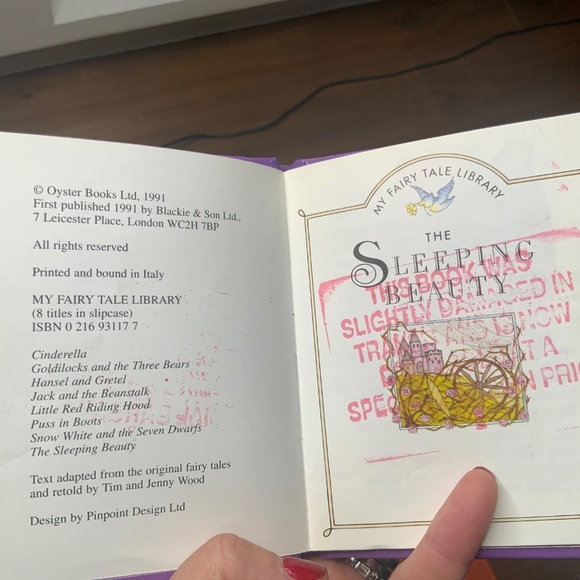 © Oyster Books Ltd, 1991
First published 1991 by Blackie & Son Ltd.,
7 Leicester Place, London WC2H 7BP
All rights reserved
Printed and bound in Italy
MY FAIRY TALE LIBRARY
(8 titles in slipcase)
ISBN 0 216 93117 7
Cinderella
Goldilocks and the Three Bears
Hansel and Gretel
Jack and the Beanstalk
Little Red Riding Hood
Puss in Boots
Snow White and the Seven Dwarfs
The Sleeping Beauty
Text adapted from the original fairy tales
and retold by Tim and Jenny Wood
Design by Pinpoint Design Ltd
MY FAIRY TALE LIBRARY
THE
SLEEPING
BEAUTY
THIS BOOK WAS
SLIGHTLY DAMAGED IN
AND IS NOW
A